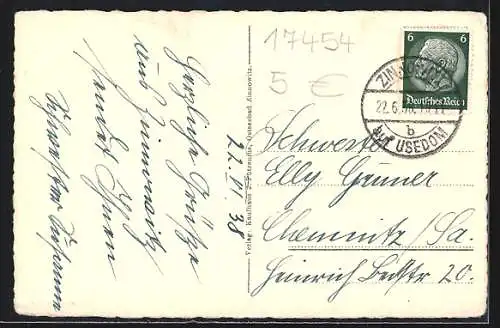 Herzliche Grüße
aus Zinnowitz
sendet Ihnen
Schwester
22. VI. 38
Verlag: Kaufhaus J. Ostseebad Zinnowitz.
17454
5 €
6 6
Deutsches Reich
ZINNOWITZ
22.6.38
b
auf USEDOM
Schwester
Elly Gruner
Chemnitz/Sa.
Heinrich Beckstr 20.